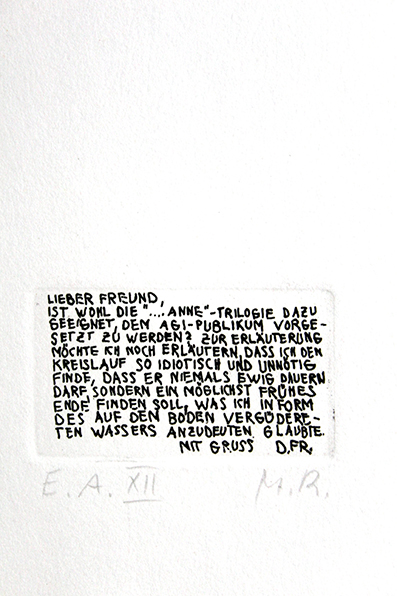 LIEBER FREUND,
IST WOHL DIE "....ANNE"-TRILOGIE DAZU
GEEIGNET, DEM AGI-PUBLIKUM VORGE-
SETZT ZU WERDEN? ZUR ERLÄUTERUNG
MÖCHTE ICH NOCH ERLÄUTERN, DASS ICH DEN
KREISLAUF SO IDIOTISCH UND UNNÖTIG
FINDE, DASS ER NIEMALS EWIG DAUERN
DARF, SONDERN EIN MÖGLICHST FRÜHES
ENDE FINDEN SOLL, WAS ICH IN FORM
DES AUF DEN BODEN VERGÜDERE-
TEN WASSERS ANZUDEUTEN GLAUBTE.
MIT GRUSS D.FR.
E.A. XII M.R.